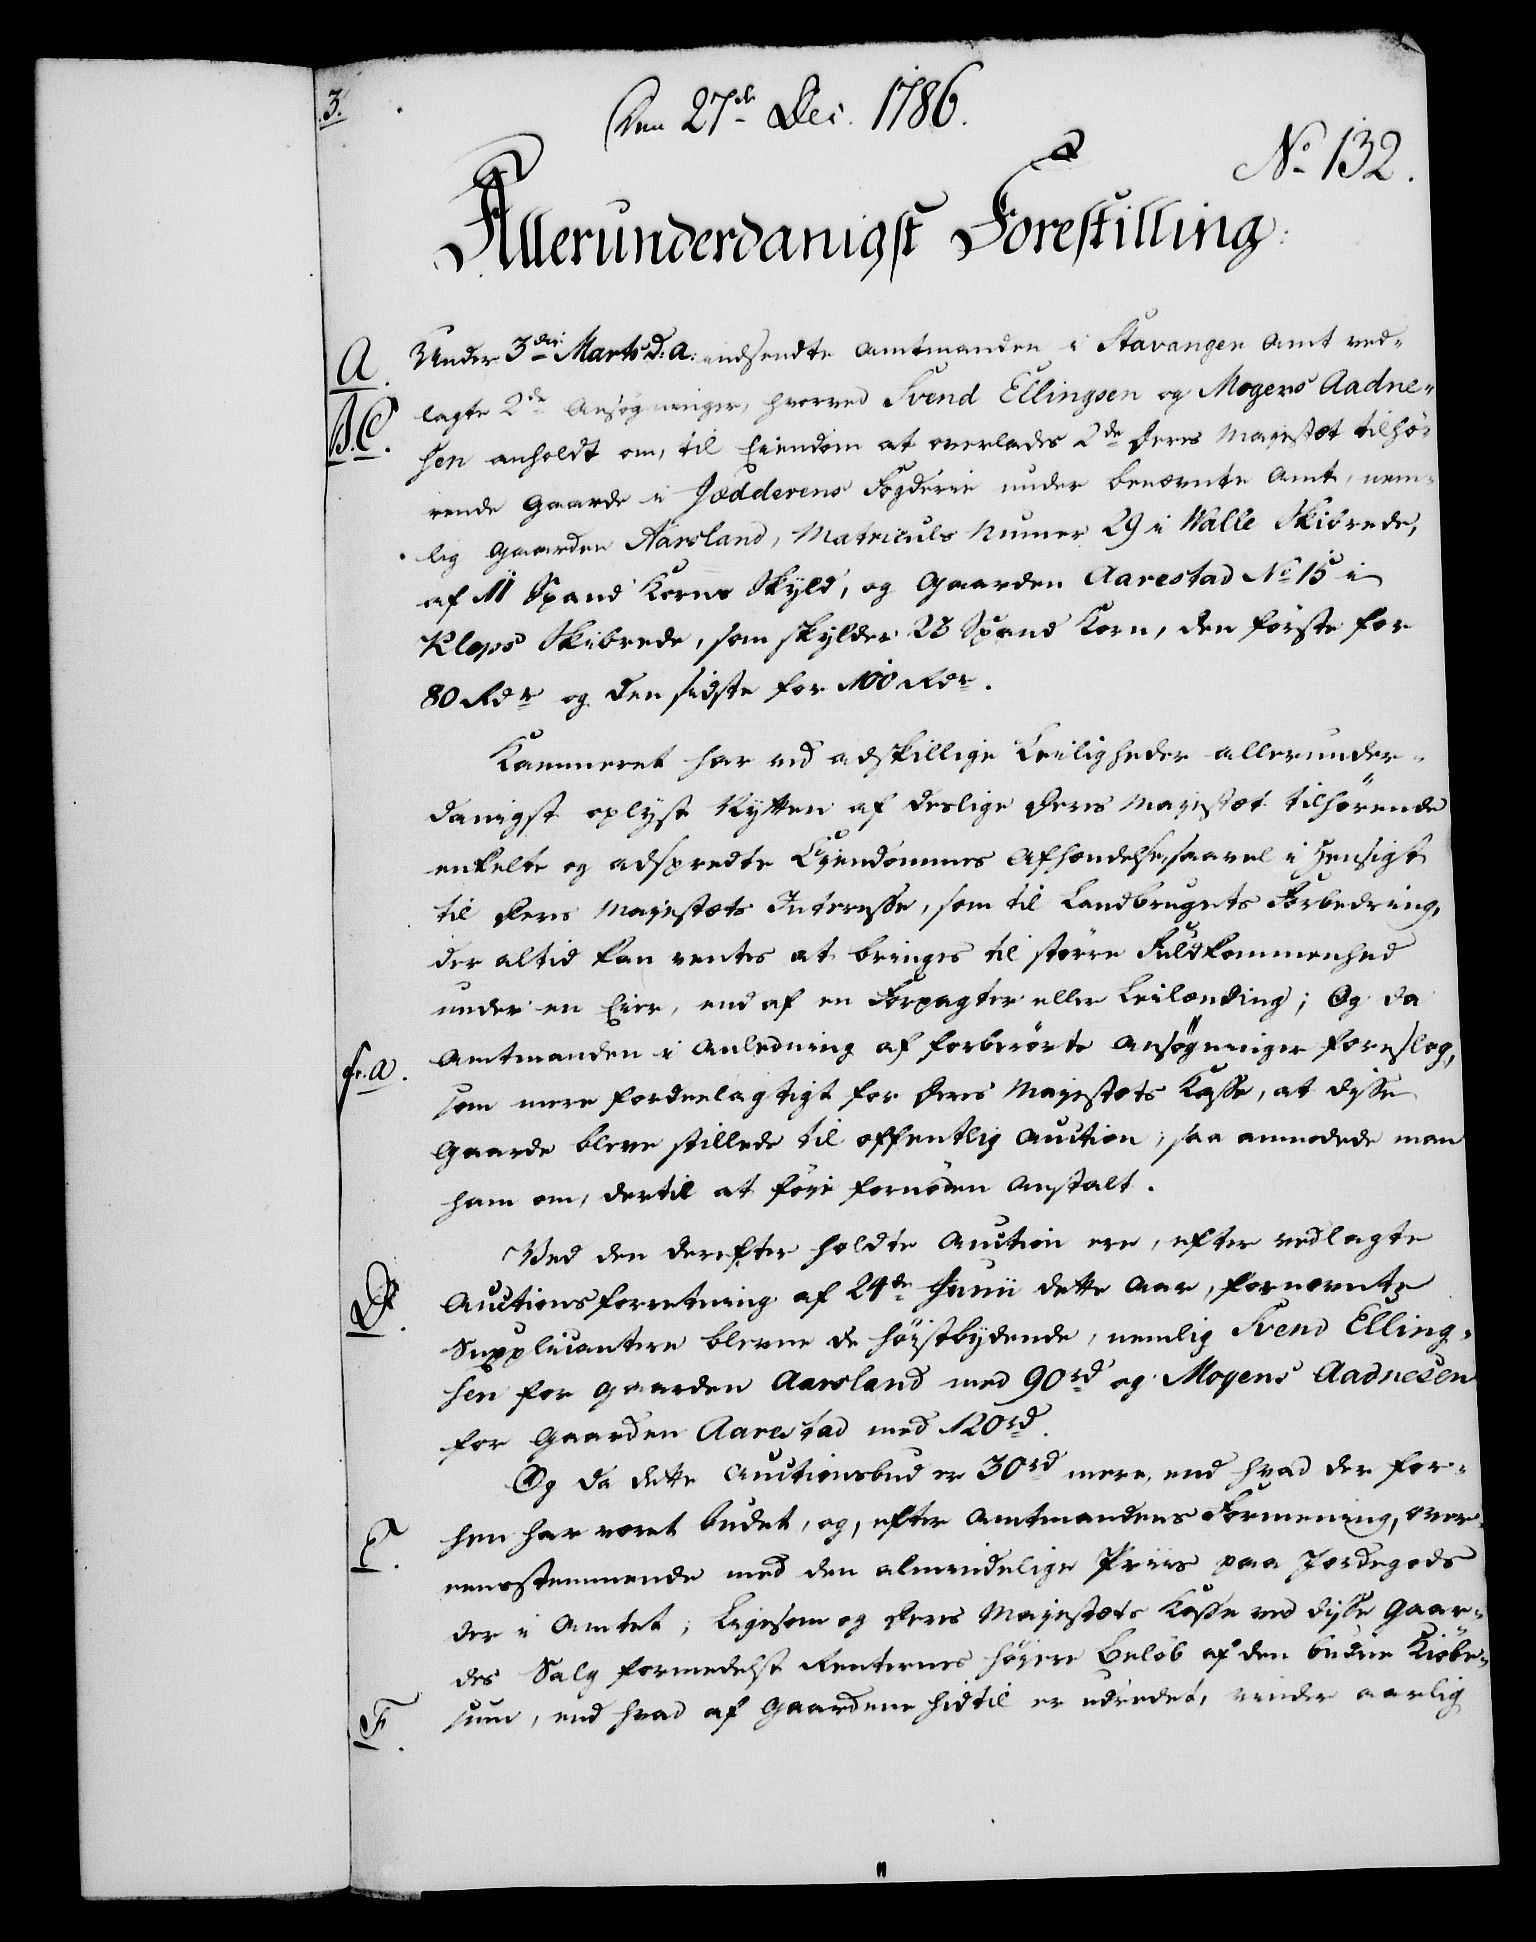 3.
Den 27de Dec. 1786.
No 132.
Allerunderdanigst Forestilling:
A. Under 3die Marts d: a: indsendte Amtmanden i Stavanger Amt ved-
B.C. lagte 2de Ansøgninger, hvorved Svend Ellingsen og Mogens Aadne-
sen anholdt om, til Eiendom at overlades 2de Deres Majestæt tilhö-
rende Gaarde i Jædderens Fogderie under benævnte Amt, nem-
lig Gaarden Aarsland, Matriculs Numer 29 i Walle Skibrede,
af 11 Spand Korns Skyld, og Gaarden Aarestad No 15 i
Kleps Skibrede, som skylder 23 Spand Korn, den förste for
80 Rdr og den sidste for 100 Rdr.
Kammeret har ved adskillige Leiligheder allerunder-
danigst oplyst Nytten af deslige Deres Majestæt tilhörende
enkelte og adspredte Eiendommes Afhændelse, saavel i Hensigt
til Deres Majestæts Interesse, som til Landbrugets Forbedring,
der altid kan ventes at bringes til större Fuldkommenhed
under en Eier, end af en Forpagter eller Leilænding; Og da
fr. A. Amtmanden i Anledning af forberörte Ansögninger foreslog,
som mere fordeelagtigt for Deres Majestæts Kasse, at disse
Gaarde bleve stillede til offentlig Auction; saa anmodede man
ham om, dertil at föje fornöden Anstalt.
Ved den derefter holdte Auction ere, efter vedlagte
D. Auctionsforretning af 24de Junii dette Aar, fornævnte
Supplicantere blevne de höistbydende, nemlig Svend Elling-
sen for Gaarden Aarsland med 90rd og Mogens Aadnesen
for Gaarden Aarestad med 120rd.
Og da dette Auctionsbud er 30rd mere, end hvad der for-
E. hen har været budet, og, efter Amtmandens Formening, over-
eensstemmende med den almindelige Priis paa Jordegods
der i Amtet; Ligesom og Deres Majestæts Kasse ved disse Gaar-
des Salg formedelst Renternes höjere Belöb af den budne Kiöbe-
F. sum, end hvad af Gaardene hidtil er udredet, vinder aarlig